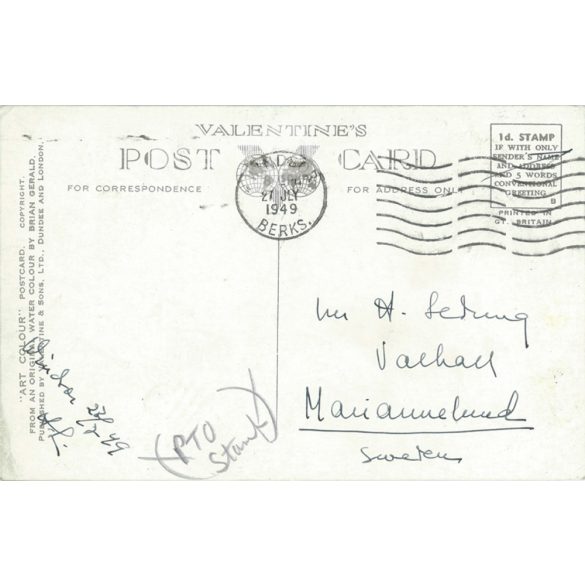 VALENTINE'S
POST CARD
FOR CORRESPONDENCE
FOR ADDRESS ONLY
1d. STAMP
IF WITH ONLY
SENDER'S NAME
AND ADDRESS
AND 5 WORDS
CONVENTIONAL
GREETING
B
PRINTED IN
GT. BRITAIN
27 JLY
1949
BERKS.
"ART COLOUR" POSTCARD. COPYRIGHT.
FROM AN ORIGINAL WATER COLOUR BY BRIAN GERALD.
PUBLISHED BY VALENTINE & SONS, LTD., DUNDEE AND LONDON.
Windsor
(PTO
Stamp)
H.
Valhall
Mariannelund
Sweden